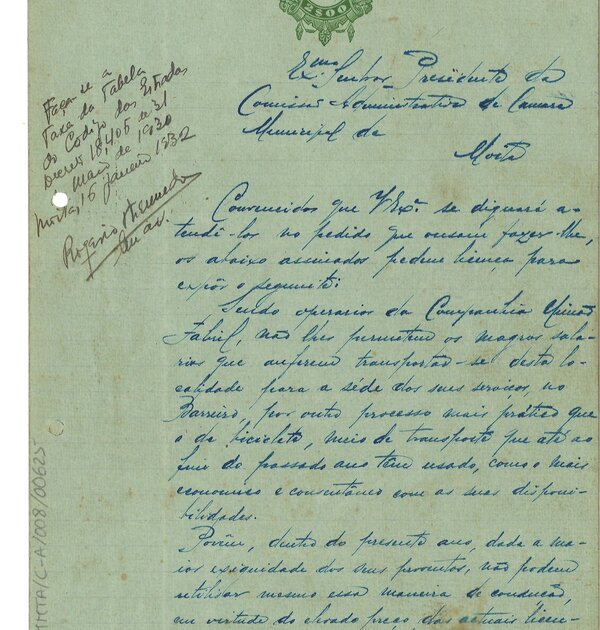 2$00
Exmo Senhor Presidente da
Comissão Administrativa da Camara
Municipal da
Moita
Faça-se a
Taxa da Tabela
do Codigo das Estradas
Decreto 18,406 de 31
maio de 1930
Moita, 16 janeiro 1932
Rogerio
Convencidos que V. Exª. se dignará a-
tendê-los no pedido que ousam fazer-lhe,
os abaixo assinados pedem licença para
expôr o seguinte:
Sendo operarios da Companhia União
Fabril, não lhes permitem os magros sala-
rios que auferem transportar-se desta lo-
calidade para a séde dos seus serviços, no
Barreiro, por outro processo mais prático que
o da bicicleta, meio de transporte que até ao
fim do passado ano têm usado, como o mais
economico e consentâneo com as suas disponi-
bilidades.
Porêm, dentro do presente ano, dada a ma-
ior exiguidade dos seus proventos, não podem
utilisar mesmo essa maneira de condução,
em virtude do elevado preço das actuais licen-
MTA/C-A/008/00625